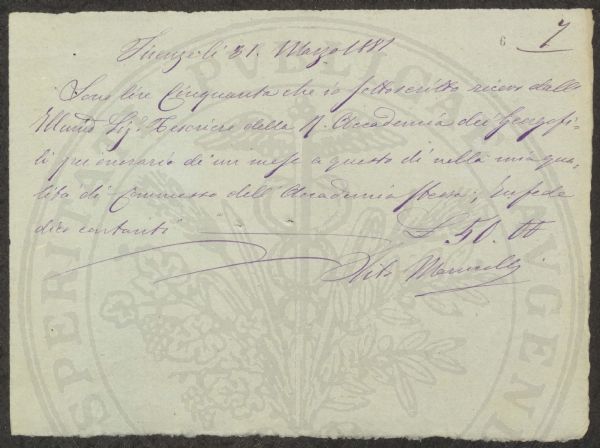 6 7
Firenze li 31. Marzo 1881
Sono lire Cinquanta che io sottoscritto ricevo dallo
Illmo Sigr. Tesoriere della R. Accademia dei Georgofi-
li per onorario di un mese a questo dì nella mia qua-
lità di Commesso dell'Accademia stessa; In fede
dico contanti £ 50. 00
Vito
PUBLICA
PROSPERITA
AUGENDA